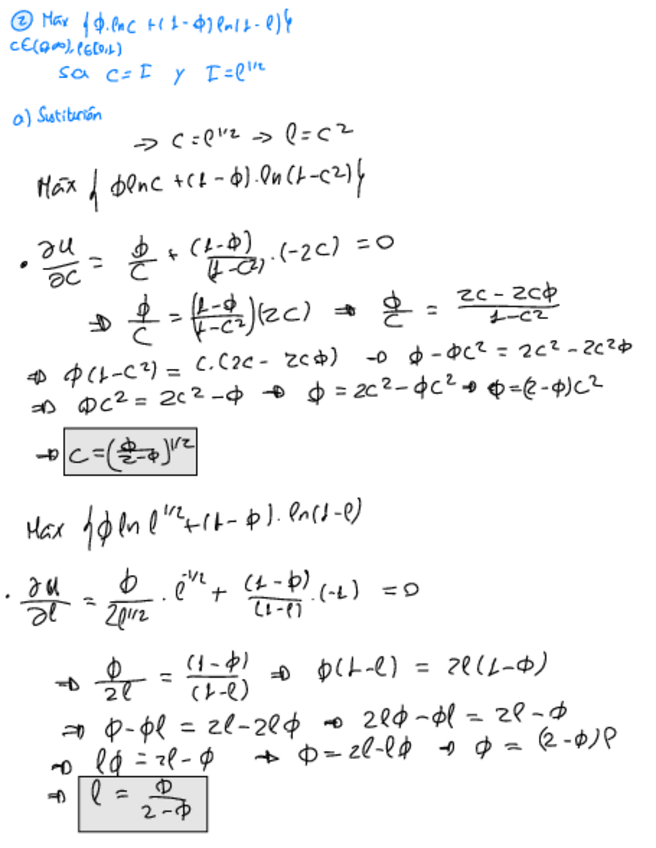 ② Máx {ϕ.lnc + (1-ϕ)ln(1-l)}
c∈(0,∞), l∈[0,1]
sa c = I y I = l^1/2
a) Sustitución
→ c = l^1/2 → l = c^2
Máx { ϕlnc + (1-ϕ).ln(1-c^2)}
• ∂u/∂c = ϕ/c + (1-ϕ)/(1-c^2) . (-2c) = 0
⇒ ϕ/c = ((1-ϕ)/(1-c^2))(2c) ⇒ ϕ/c = (2c - 2cϕ)/(1-c^2)
⇒ ϕ(1-c^2) = c.(2c - 2cϕ) → ϕ - ϕc^2 = 2c^2 - 2c^2ϕ
⇒ ϕc^2 = 2c^2 - ϕ ⇒ ϕ = 2c^2 - ϕc^2 ⇒ ϕ = (2-ϕ)c^2
⇒ c = (ϕ/(2-ϕ))^1/2
Máx {ϕ ln l^1/2 + (1-ϕ). ln(1-l)
• ∂u/∂l = ϕ/(2l^1/2) . l^-1/2 + (1-ϕ)/(1-l) . (-1) = 0
⇒ ϕ/2l = (1-ϕ)/(1-l) ⇒ ϕ(1-l) = 2l(1-ϕ)
⇒ ϕ-ϕl = 2l-2lϕ ⇒ 2lϕ-ϕl = 2l-ϕ
⇒ lϕ = 2l-ϕ ⇒ ϕ = 2l-lϕ ⇒ ϕ = (2-ϕ)l
⇒ l = ϕ/(2-ϕ)